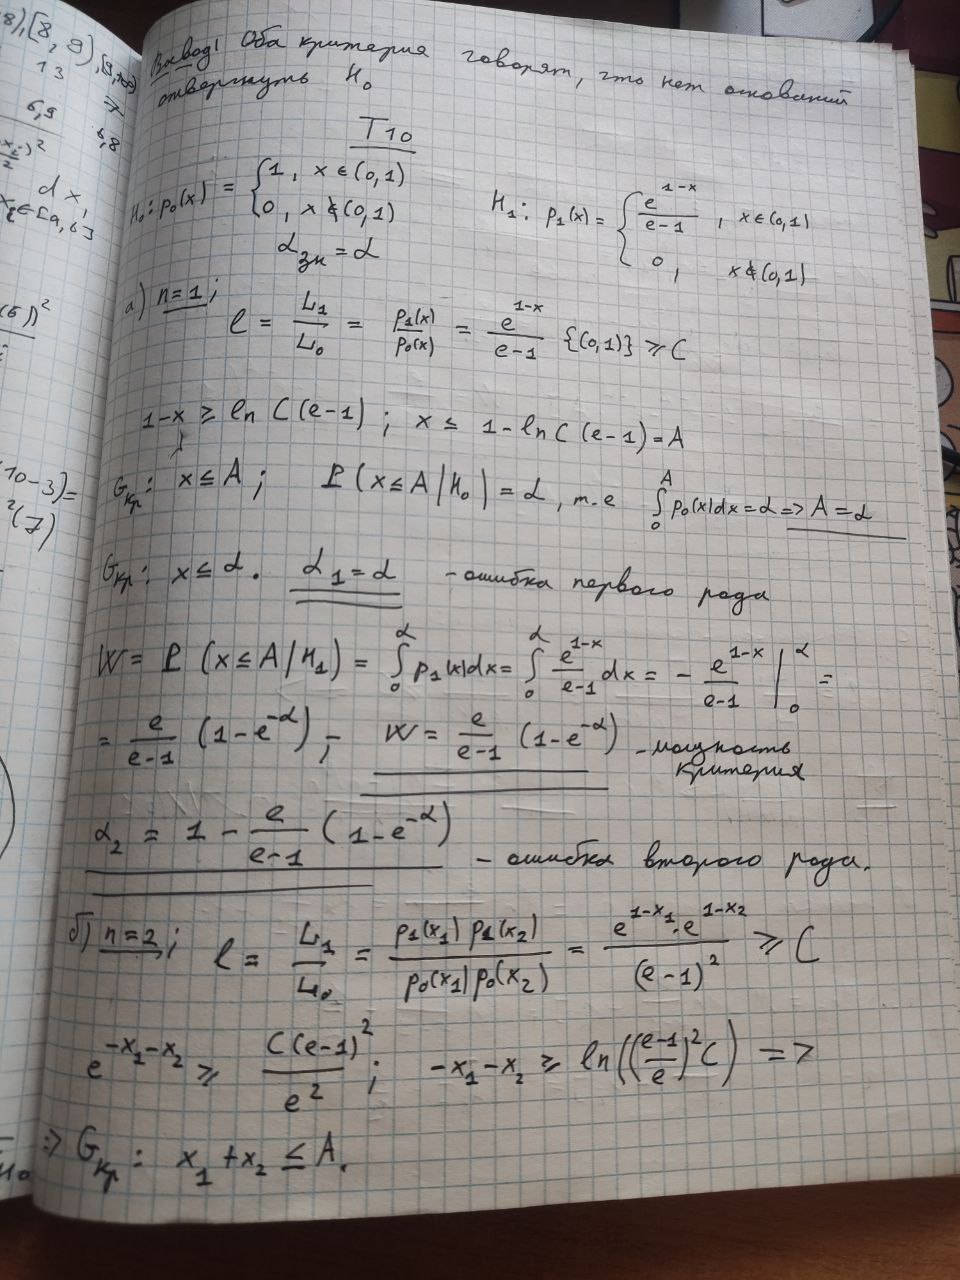 8), [8, 9), [9, +∞)
13 7
6,9 6,8
dx,
x_i ∈ [a, b]
(10-3)=
²(7)
Вывод! Оба критерия говорят, что нет оснований
отвергнуть H₀
T10
H₀: p₀(x) = { 1, x ∈ (0,1)
0, x ∉ (0,1)
H₁: p₁(x) = { e^(1-x)/(e-1), x ∈ (0,1)
0, x ∉ (0,1)
α_зн = α
а) n=1;
ℓ = L₁/L₀ = p₁(x)/p₀(x) = e^(1-x)/(e-1) {(0,1)} ⩾ C
1-x ⩾ ln C(e-1); x ≤ 1-ln C(e-1) = A
G_кр: x ≤ A; P(x ≤ A/H₀) = α, т.е ∫₀^A p₀(x)dx = α => A = α
G_кр: x ≤ α. α₁ = α - ошибка первого рода
W = P(x ≤ A/H₁) = ∫₀^α p₁(x)dx = ∫₀^α e^(1-x)/(e-1) dx = - e^(1-x)/(e-1) |₀^α =
= e/(e-1) (1-e^(-α)); W = e/(e-1) (1-e^(-α)) - мощность
критерия
α₂ = 1 - e/(e-1) (1-e^(-α)) - ошибка второго рода.
б) n=2; ℓ = L₁/L₀ = p₁(x₁)p₁(x₂)/p₀(x₁)p₀(x₂) = e^(1-x₁)·e^(1-x₂)/(e-1)² ⩾ C
e^(-x₁-x₂) ⩾ C(e-1)²/e²; -x₁-x₂ ⩾ ln(((e-1)/e)²C) =>
=> G_кр: x₁+x₂ ≤ A.